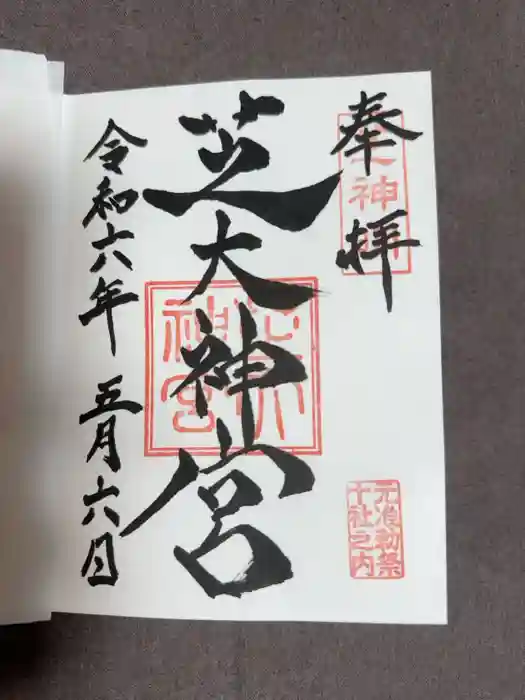 奉拝
芝大神宮
令和六年 五月六日
神
神宮
元准勅祭
十社之内